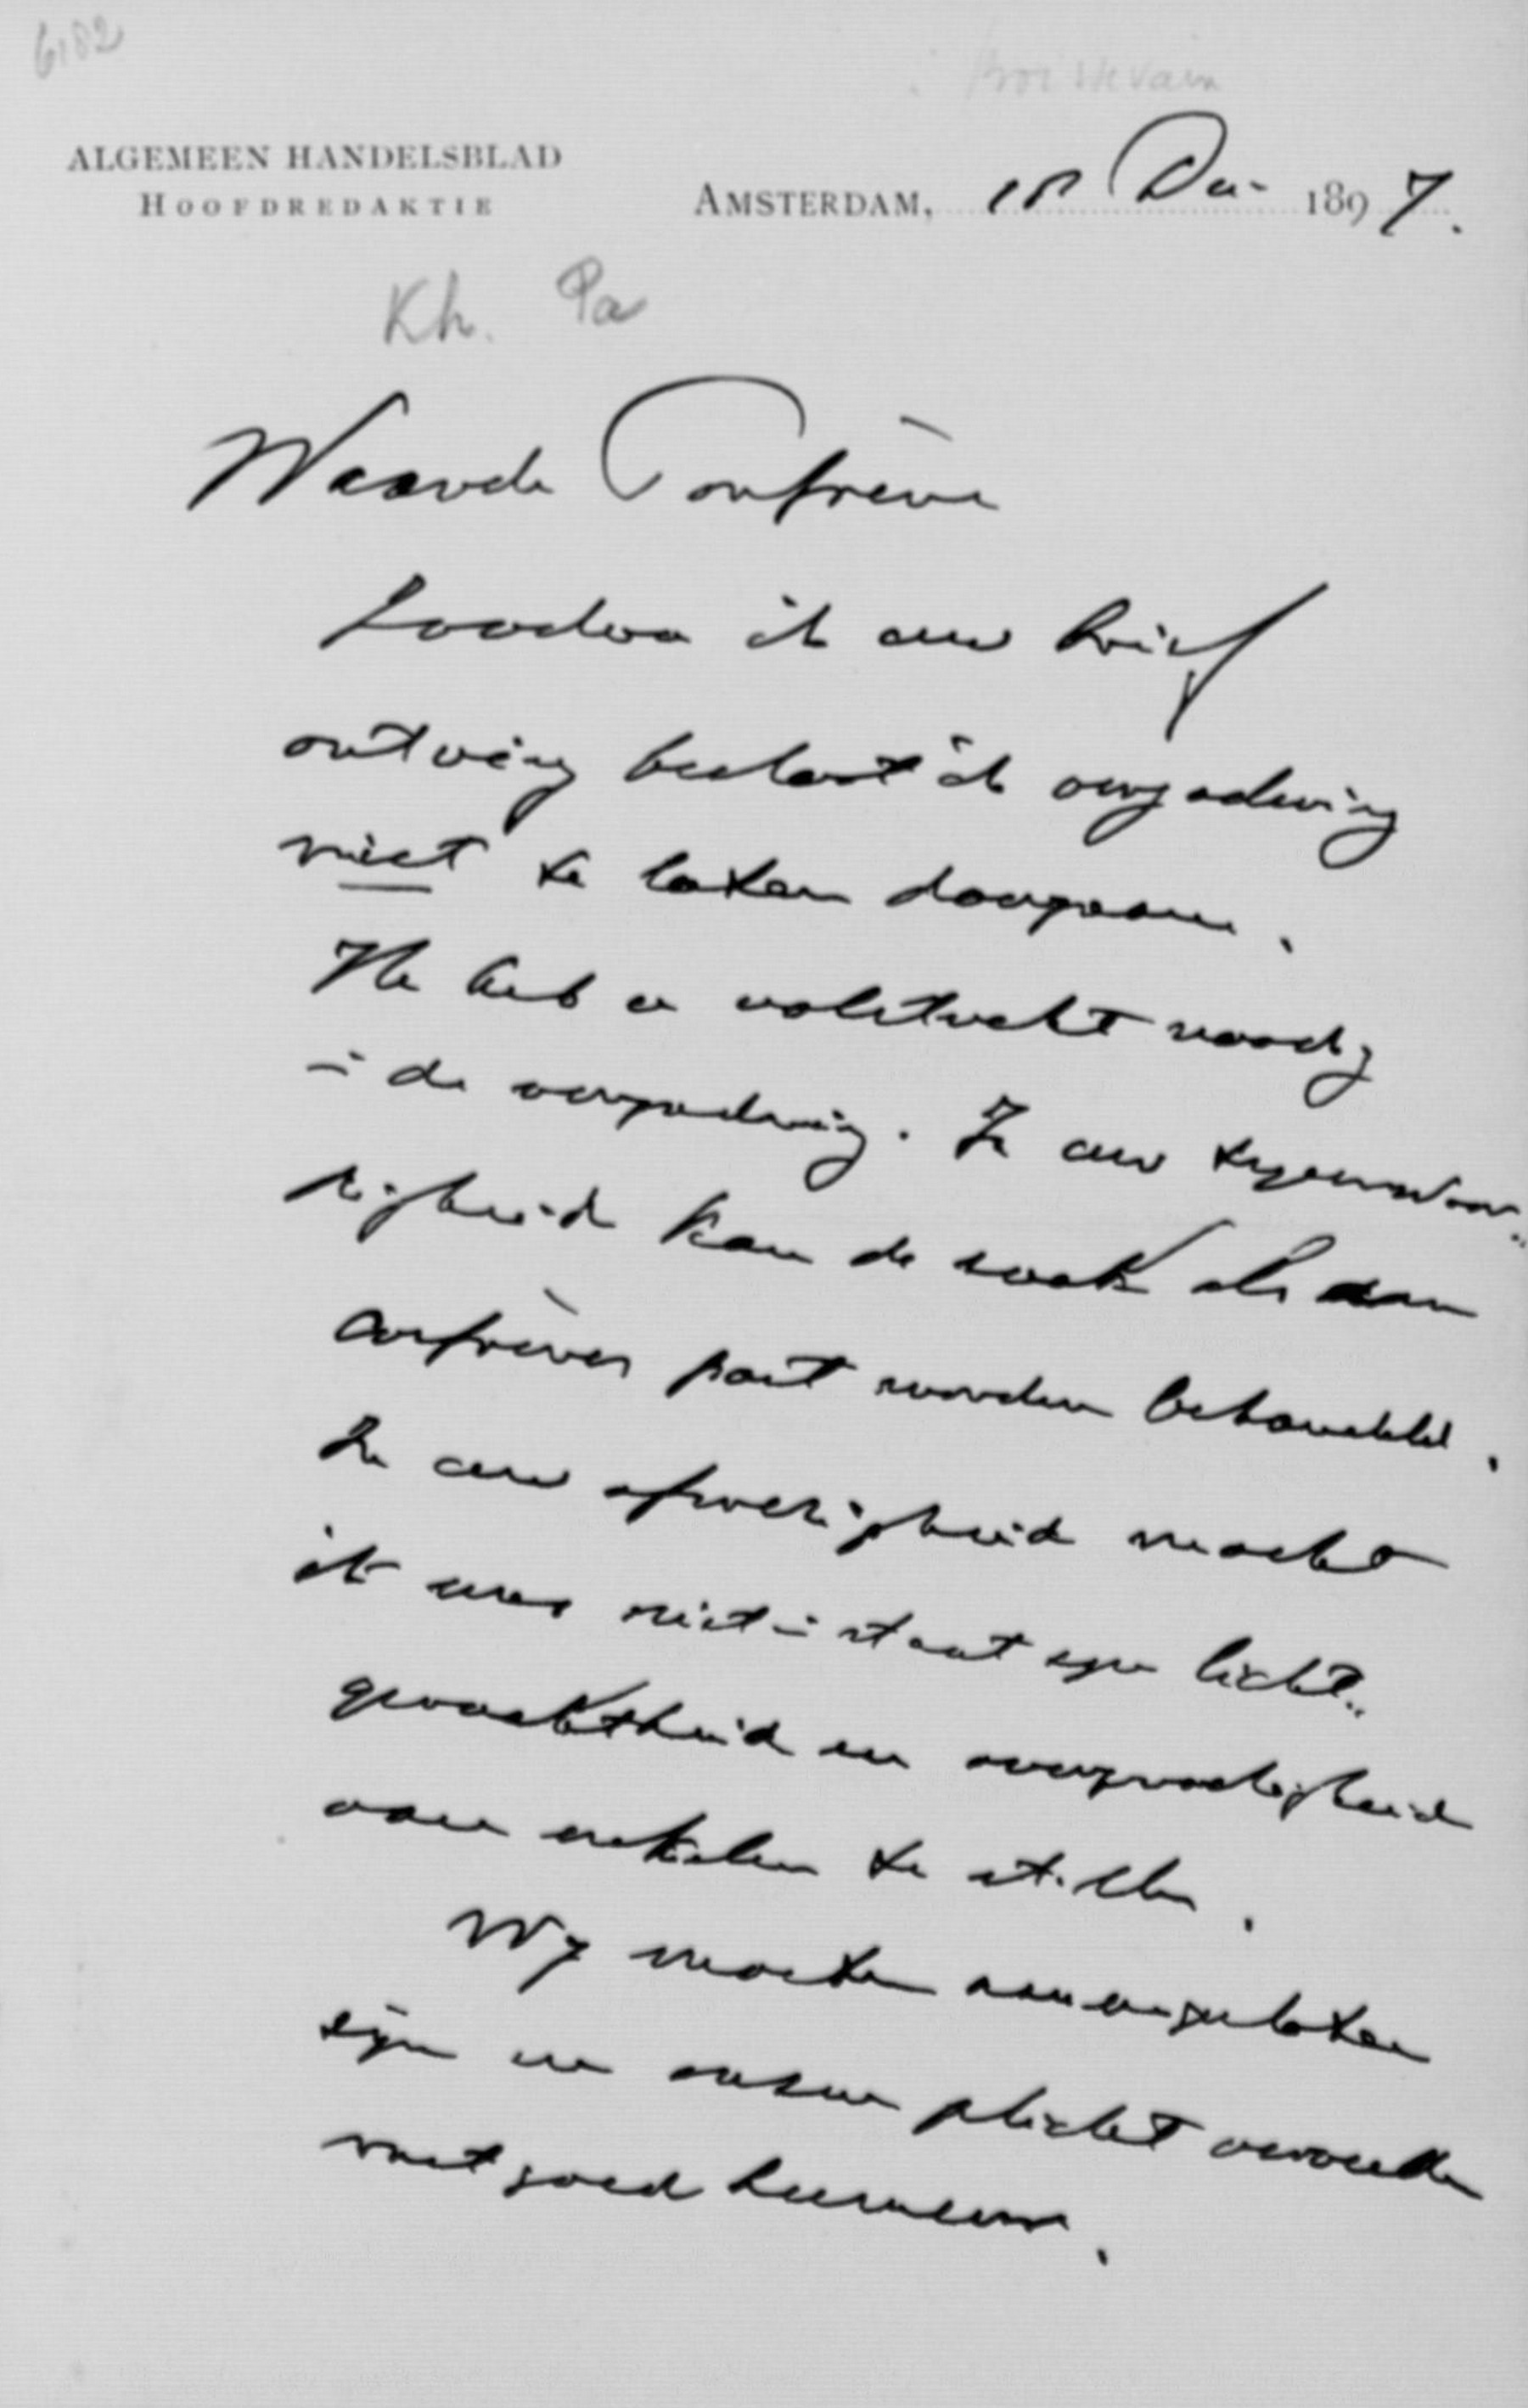 6182
Boissevain
ALGEMEEN HANDELSBLAD
HOOFDREDAKTIE
AMSTERDAM, Dec. 1897.
Kh. Pa
Waarde Confrère
Zoodra ik uw brief
ontving besloot ik vergadering
niet te laten doorgaan.
Ik heb u volstrekt noodig
in de vergadering. In uw tegenwoor-
digheid kan de zaak als een
confrères part worden behandeld.
In uw afwezigheid mocht
ik eens niet in staat zijn licht-
geraaktheid en overgevoeligheid
van enkelen te stillen.
Wij moeten aaneengesloten
zijn en onzen plicht vervullen
met goed humeur.